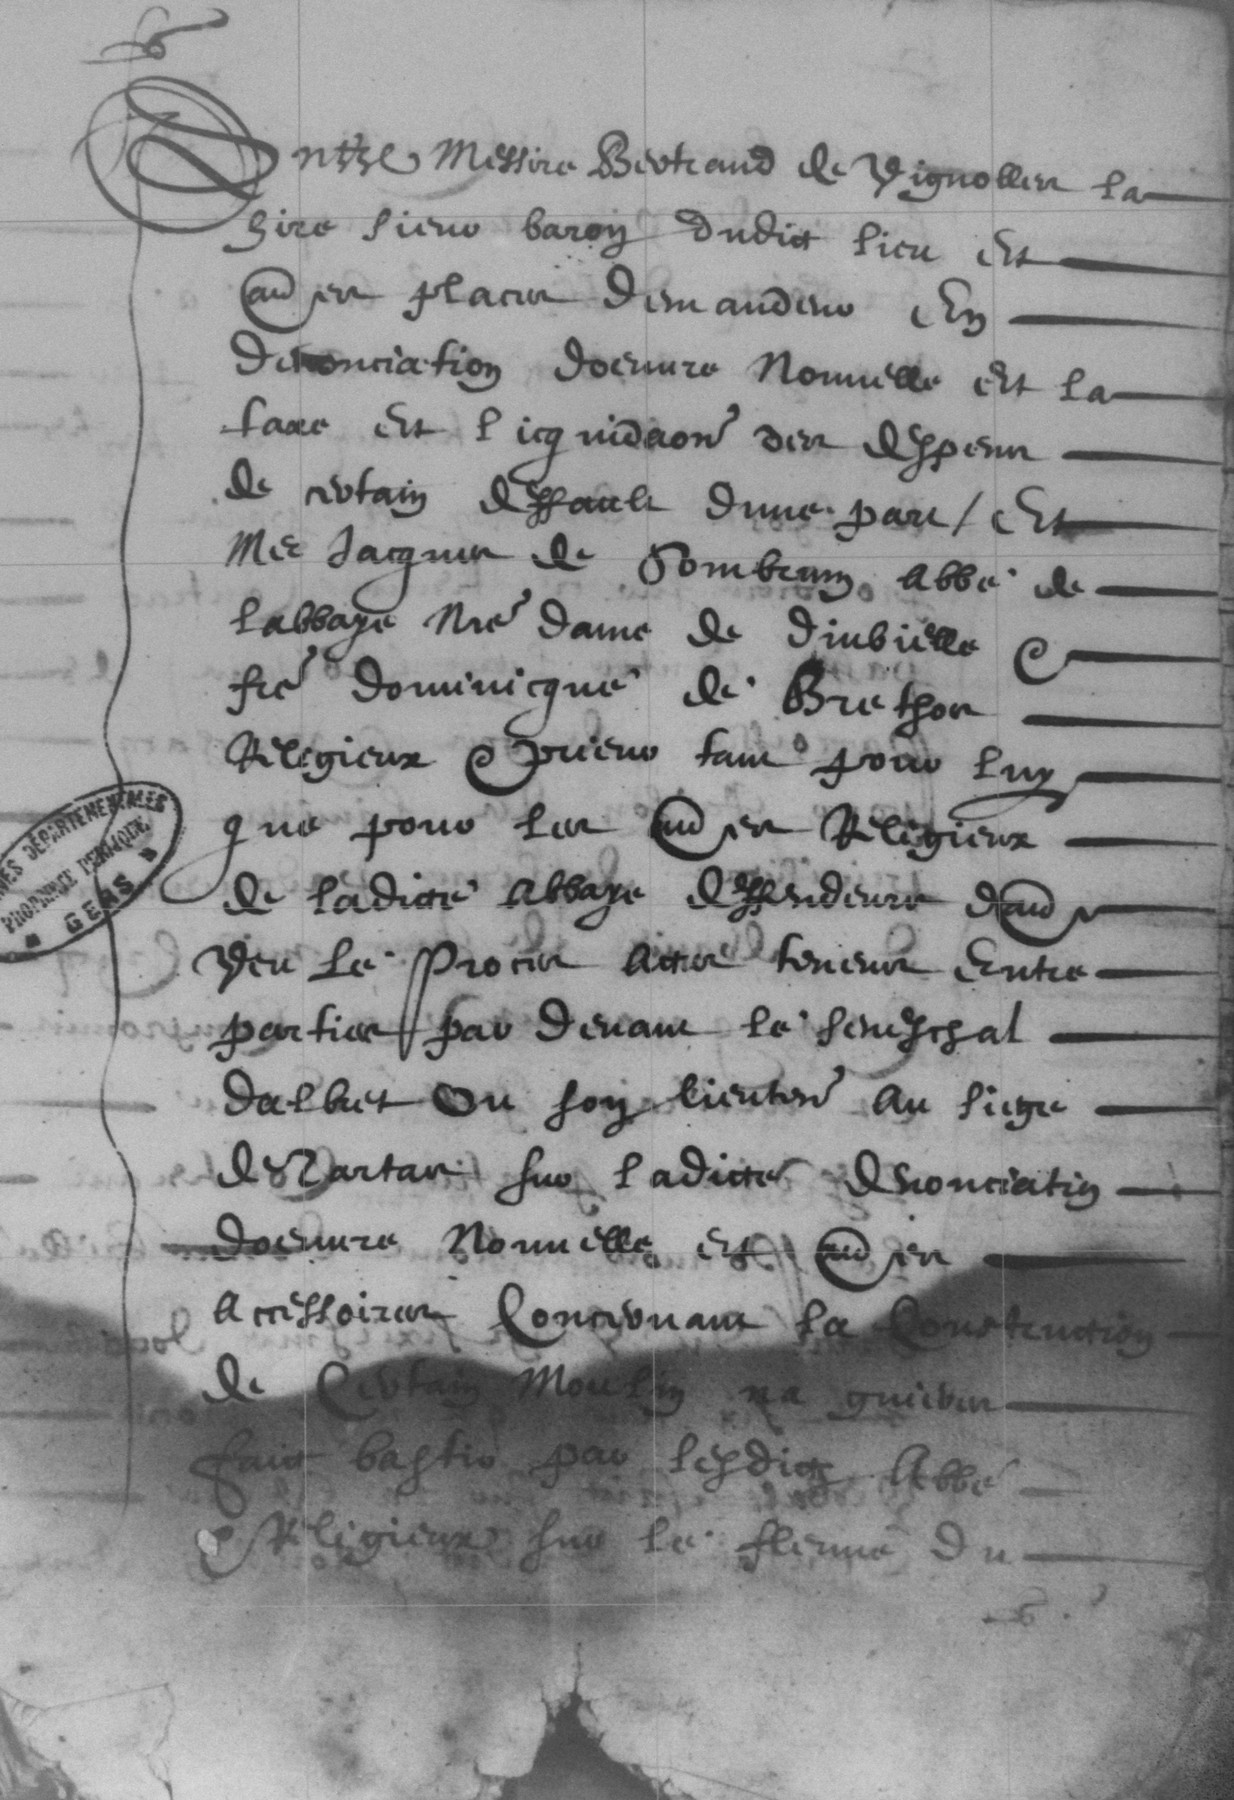 Entre Messire Bertrand de Vignolles la
hire sieur baron dudict lieu et
aues places demandeur en
denonciation doeuvre nouuelle et la
taxe et licquidaon des despens
de certain deffault dune part / Et
Mre Jacques de Pombrun abbe de
labbaye nre dame de diubielle &
fre dominicque de Brethos
Religieux & prieur tant pour luy
que pour les aues Religieux
de ladicte abbaye deffendeurs dau
Veu le proces actes teneur entre
parties par deuant le seneschal
dalbret ou son lieuten au siege
de Tartas sur ladicte denonciation
doeuure nouuelle et aues
accessoires concernant la construction
de certain moulin na guieres
faict bastir par lesdicts abbe
& Religieux sur le fleuue du